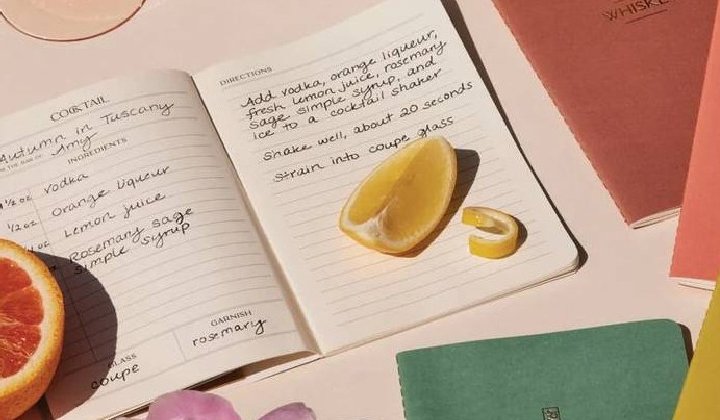 COCKTAIL
Autumn in Tuscany
Amy
INGREDIENTS
1/2 oz vodka
1/2 oz Orange liqueur
oz Lemon juice
Rosemary sage
simple syrup
GLASS
coupe
GARNISH
rosemary
DIRECTIONS
Add vodka, orange liqueur,
fresh lemon juice, rosemary
sage simple syrup, and
ice to a cocktail shaker
Shake well, about 20 seconds
Strain into coupe glass
WHISKE